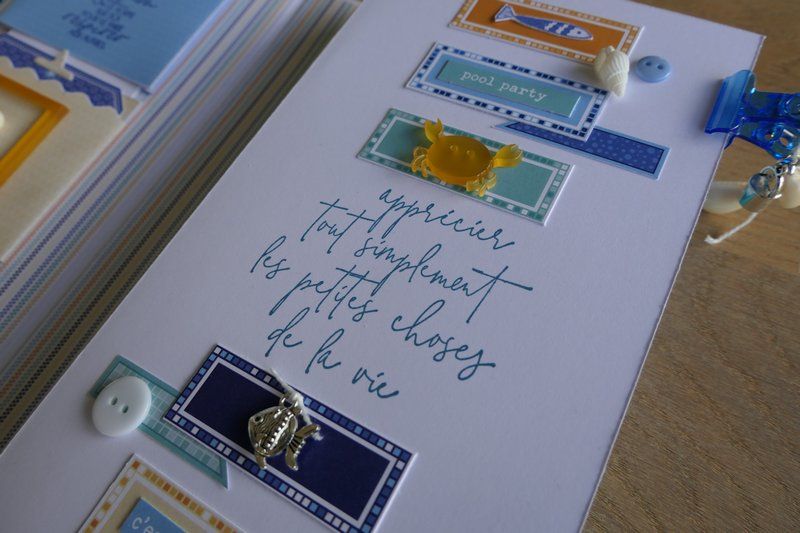 pool party
apprécier
tout simplement
les petites choses
de la vie
c'e